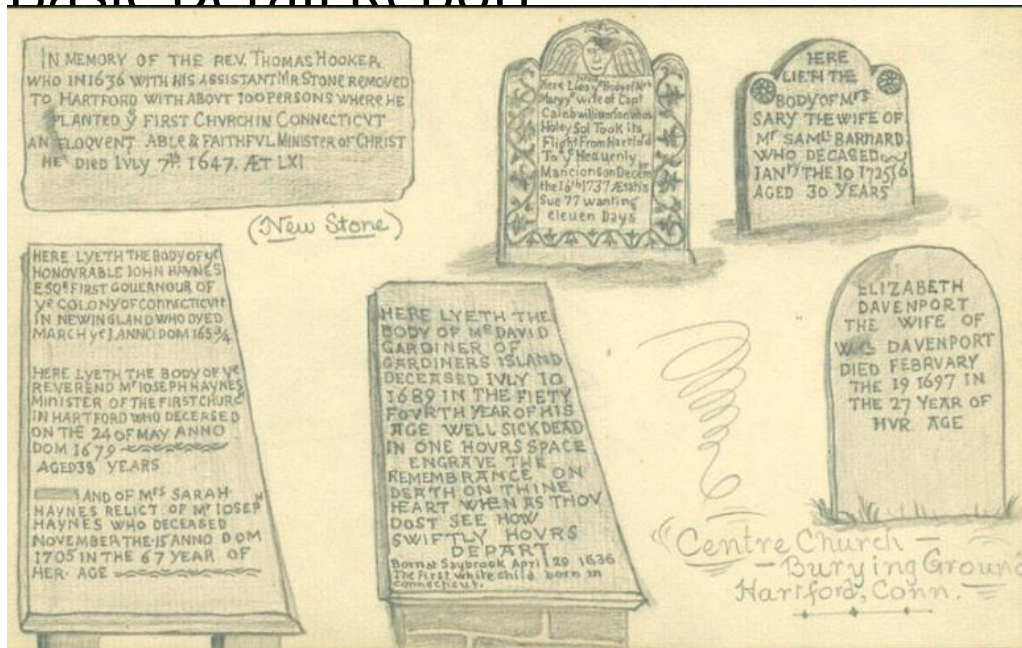 Basic Detail Report
IN MEMORY OF THE REV. THOMAS HOOKER
WHO IN 1636 WITH HIS ASSISTANT MR STONE REMOVED
TO HARTFORD WITH ABOVT 100 PERSONS WHERE HE
PLANTED Yᵉ FIRST CHVRCH IN CONNECTICVT
AN ELOQVENT ABLE & FAITHFVL MINISTER OF CHRIST
HE DIED IVLY 7th 1647. ÆT LXI
(New Stone)
Here Lies yᵉ Body of Mrs
Mary yᵉ wife of Capt
Caleb williamson whos
Holey Sol Took its
Flight From Hartford
To yᵉ Heauenly
Mancions on Decembr
the 16th 1737 Ætatis
Sue 77 wanting
eleuen Days
HERE
LIETH THE
BODY OF Mrs
SARY THE WIFE OF
Mr SAMLL BARNARD
WHO DECASED
IANry THE 10 1725/6
AGED 30 YEARS
HERE LYETH THE BODY OF yᵉ
HONOVRABLE IOHN HAYNES
ESQR FIRST GOUERNOUR OF
Yᵉ COLONY OF CONNECTICVTT
IN NEWINGLAND WHO DYED
MARCH yᵉ I ANNO DOM 165 3/4
HERE LYETH THE BODY OF yᵉ
REVEREND Mr IOSEPH HAYNES
MINISTER OF THE FIRST CHURCH
IN HARTFORD WHO DECEASED
ON THE 24 OF MAY ANNO
DOM 1679
AGED 38 YEARS
AND OF Mrs SARAH
HAYNES RELICT OF Mr IOSEPH
HAYNES WHO DECEASED
NOVEMBER THE 15 ANNO DOM
1705 IN THE 67 YEAR OF
HER AGE
HERE LYETH THE
BODY OF MR DAVID
GARDINER OF
GARDINERS ISLAND
DECEASED IVLY 10
1689 IN THE FIFTY
FOVRTH YEAR OF HIS
AGE WELL SICK DEAD
IN ONE HOVRS SPACE
ENGRAVE THE
REMEMBRANCE ON
DEATH ON THINE
HEART WHEN AS THOV
DOST SEE HOW
SWIFTLY HOVRS
DEPART
Born at Saybrook April 29 1636
The First white child born in
connecticut.
ELIZABETH
DAVENPORT
THE WIFE OF
DAVENPORT
DIED FEBRVARY
THE 19 1697 IN
THE 27 YEAR OF
HVR AGE
Centre Church –
– Burying Ground
Hartford, Conn.